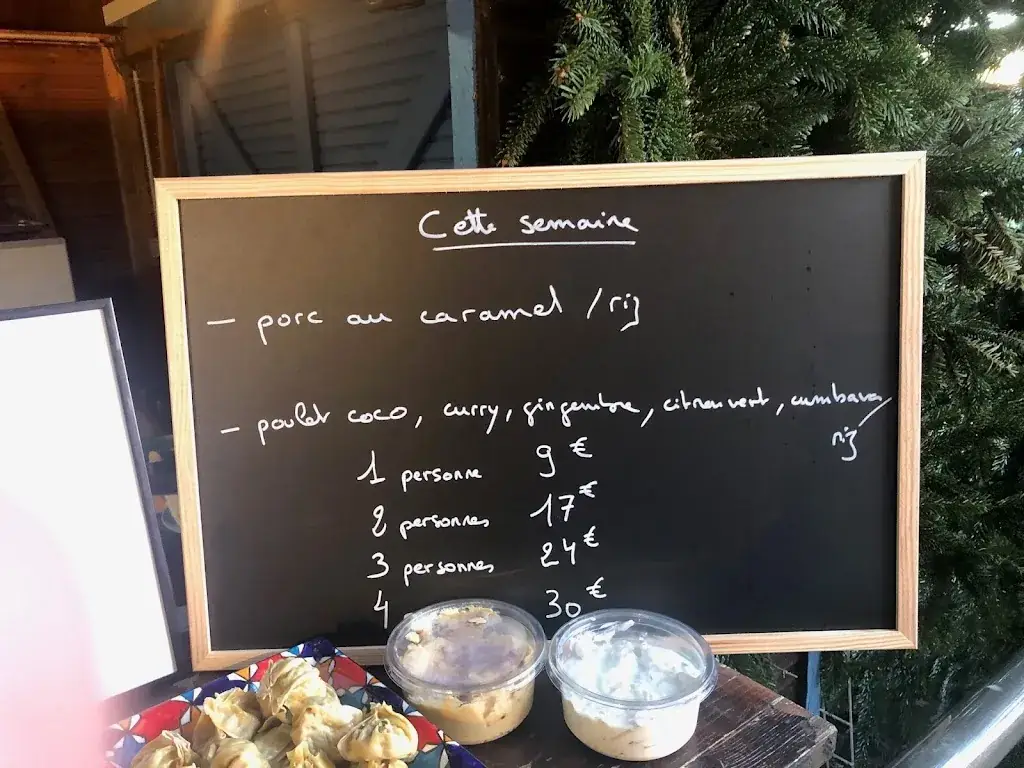 Cette semaine
- porc au caramel / riz
- poulet coco, curry, gingembre, citron vert, cumbava /
riz
1 personne 9 €
2 personnes 17 €
3 personnes 24 €
4 30 €